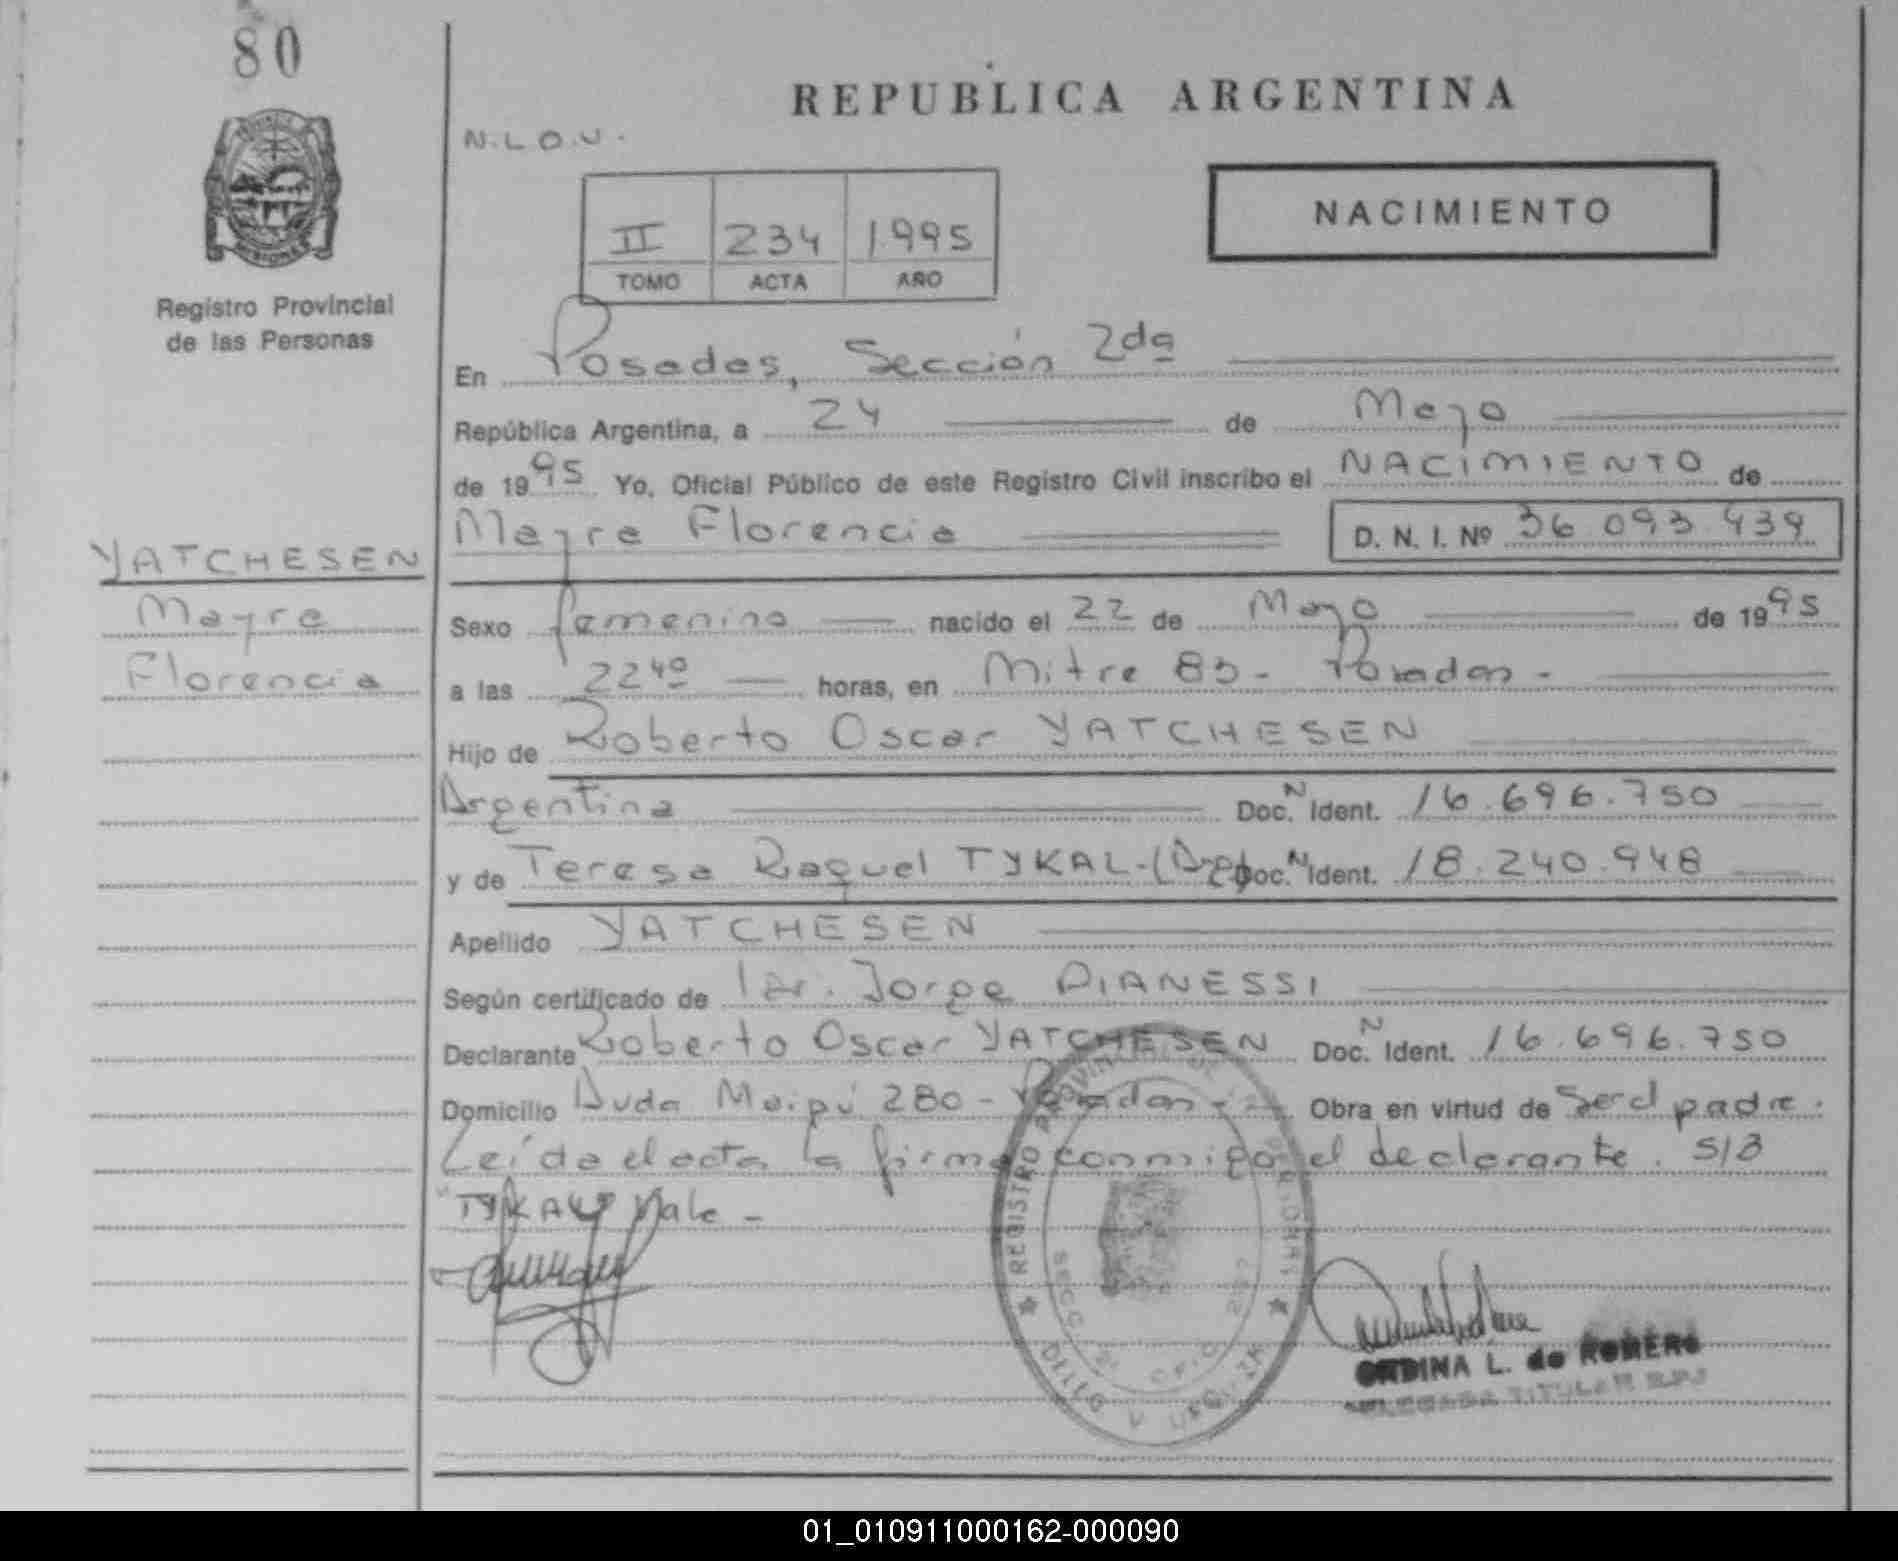 80
REPUBLICA ARGENTINA
N.L.O.U.
NACIMIENTO
II 234 1995
TOMO ACTA AÑO
Registro Provincial
de las Personas
En Posadas, Sección 2da
República Argentina, a 24 de Mayo
de 1995 Yo, Oficial Público de este Registro Civil inscribo el NACIMIENTO de
Mayra Florencia D. N. I. Nº 36.093.439
YATCHESEN
Mayra
Florencia
Sexo femenino nacido el 22 de Mayo de 1995
a las 22 40 horas, en Mitre 83 - Posadas -
Hijo de Roberto Oscar YATCHESEN
Argentina Doc. N Ident. 16.696.750
y de Teresa Raquel TYKAL - (Arg) Doc. N Ident. 18.240.948
Apellido YATCHESEN
Según certificado de Jorge PIANESSI
Declarante Roberto Oscar YATCHESEN Doc. N Ident. 16.696.750
Domicilio Avda Maipú 280 - Posadas - Obra en virtud de Ser el padre.
Leída el acta la firma conmigo el declarante. S/B
"TYKAL" Vale -
REGISTRO PROVINCIAL DE LAS PERSONAS
L. de ROMERO
TITULAR R.P.
01_010911000162-000090